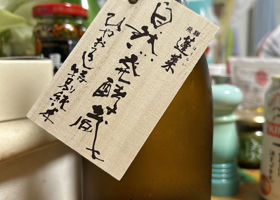 飛騨
蓬莱
自然発酵蔵
ひやおろし 特別純米